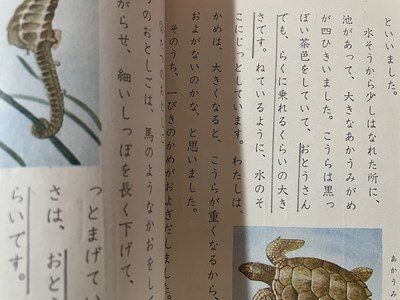 といいました。
水そうから少しはなれた所に、
池があって、大きなあかうみがめ
が四ひきいました。こうらは黒っ
ぽい茶色をしていて、おとうさん
でも、らくに乗れるくらいの大き
さです。ねているように、水のそ
こにじっとしています。わたしは、
かめは、大きくなると、こうらが重くなるから、
およがないのかな、と思いました。
そのうち、一ぴきのかめがおよぎだしました。
のおとしごは、馬のようなかおをしく
がらせ、細いしっぽを長く下げて、
っとまげてい
さは、おとう
らいです。
あかうみ